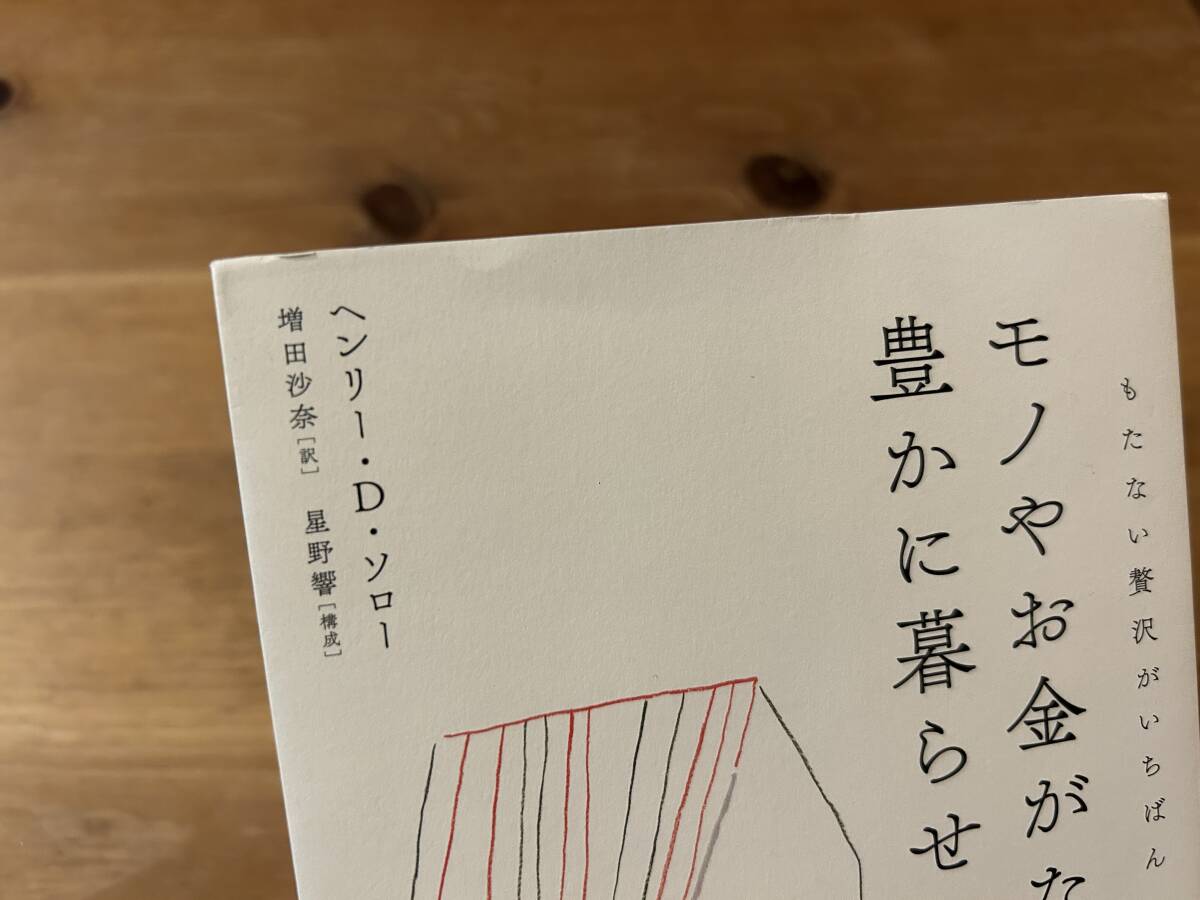 もたない贅沢がいちばん
モノやお金がた
豊かに暮らせ
ヘンリー・D・ソロー
増田沙奈[訳] 星野響[構成]